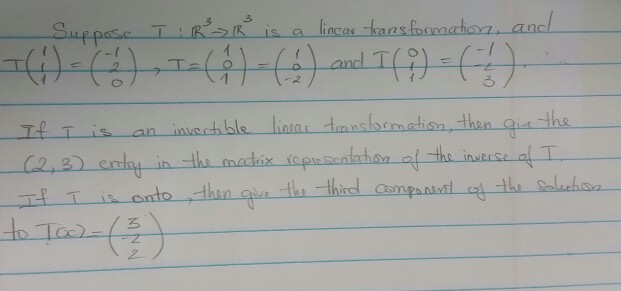 Suppose T : ℝ³→ℝ³ is a linear transformation, and
T(1 1 1) = (-1 2 0), T=(1 0 1) = (1 0 -2) and T(0 1 1) = (-1 -2 3).
If T is an invertible linear transformation, then give the
(2,3) entry in the matrix representation of the inverse of T.
If T is onto, then give the third component of the solution
to T(x)=(3 -2 2)